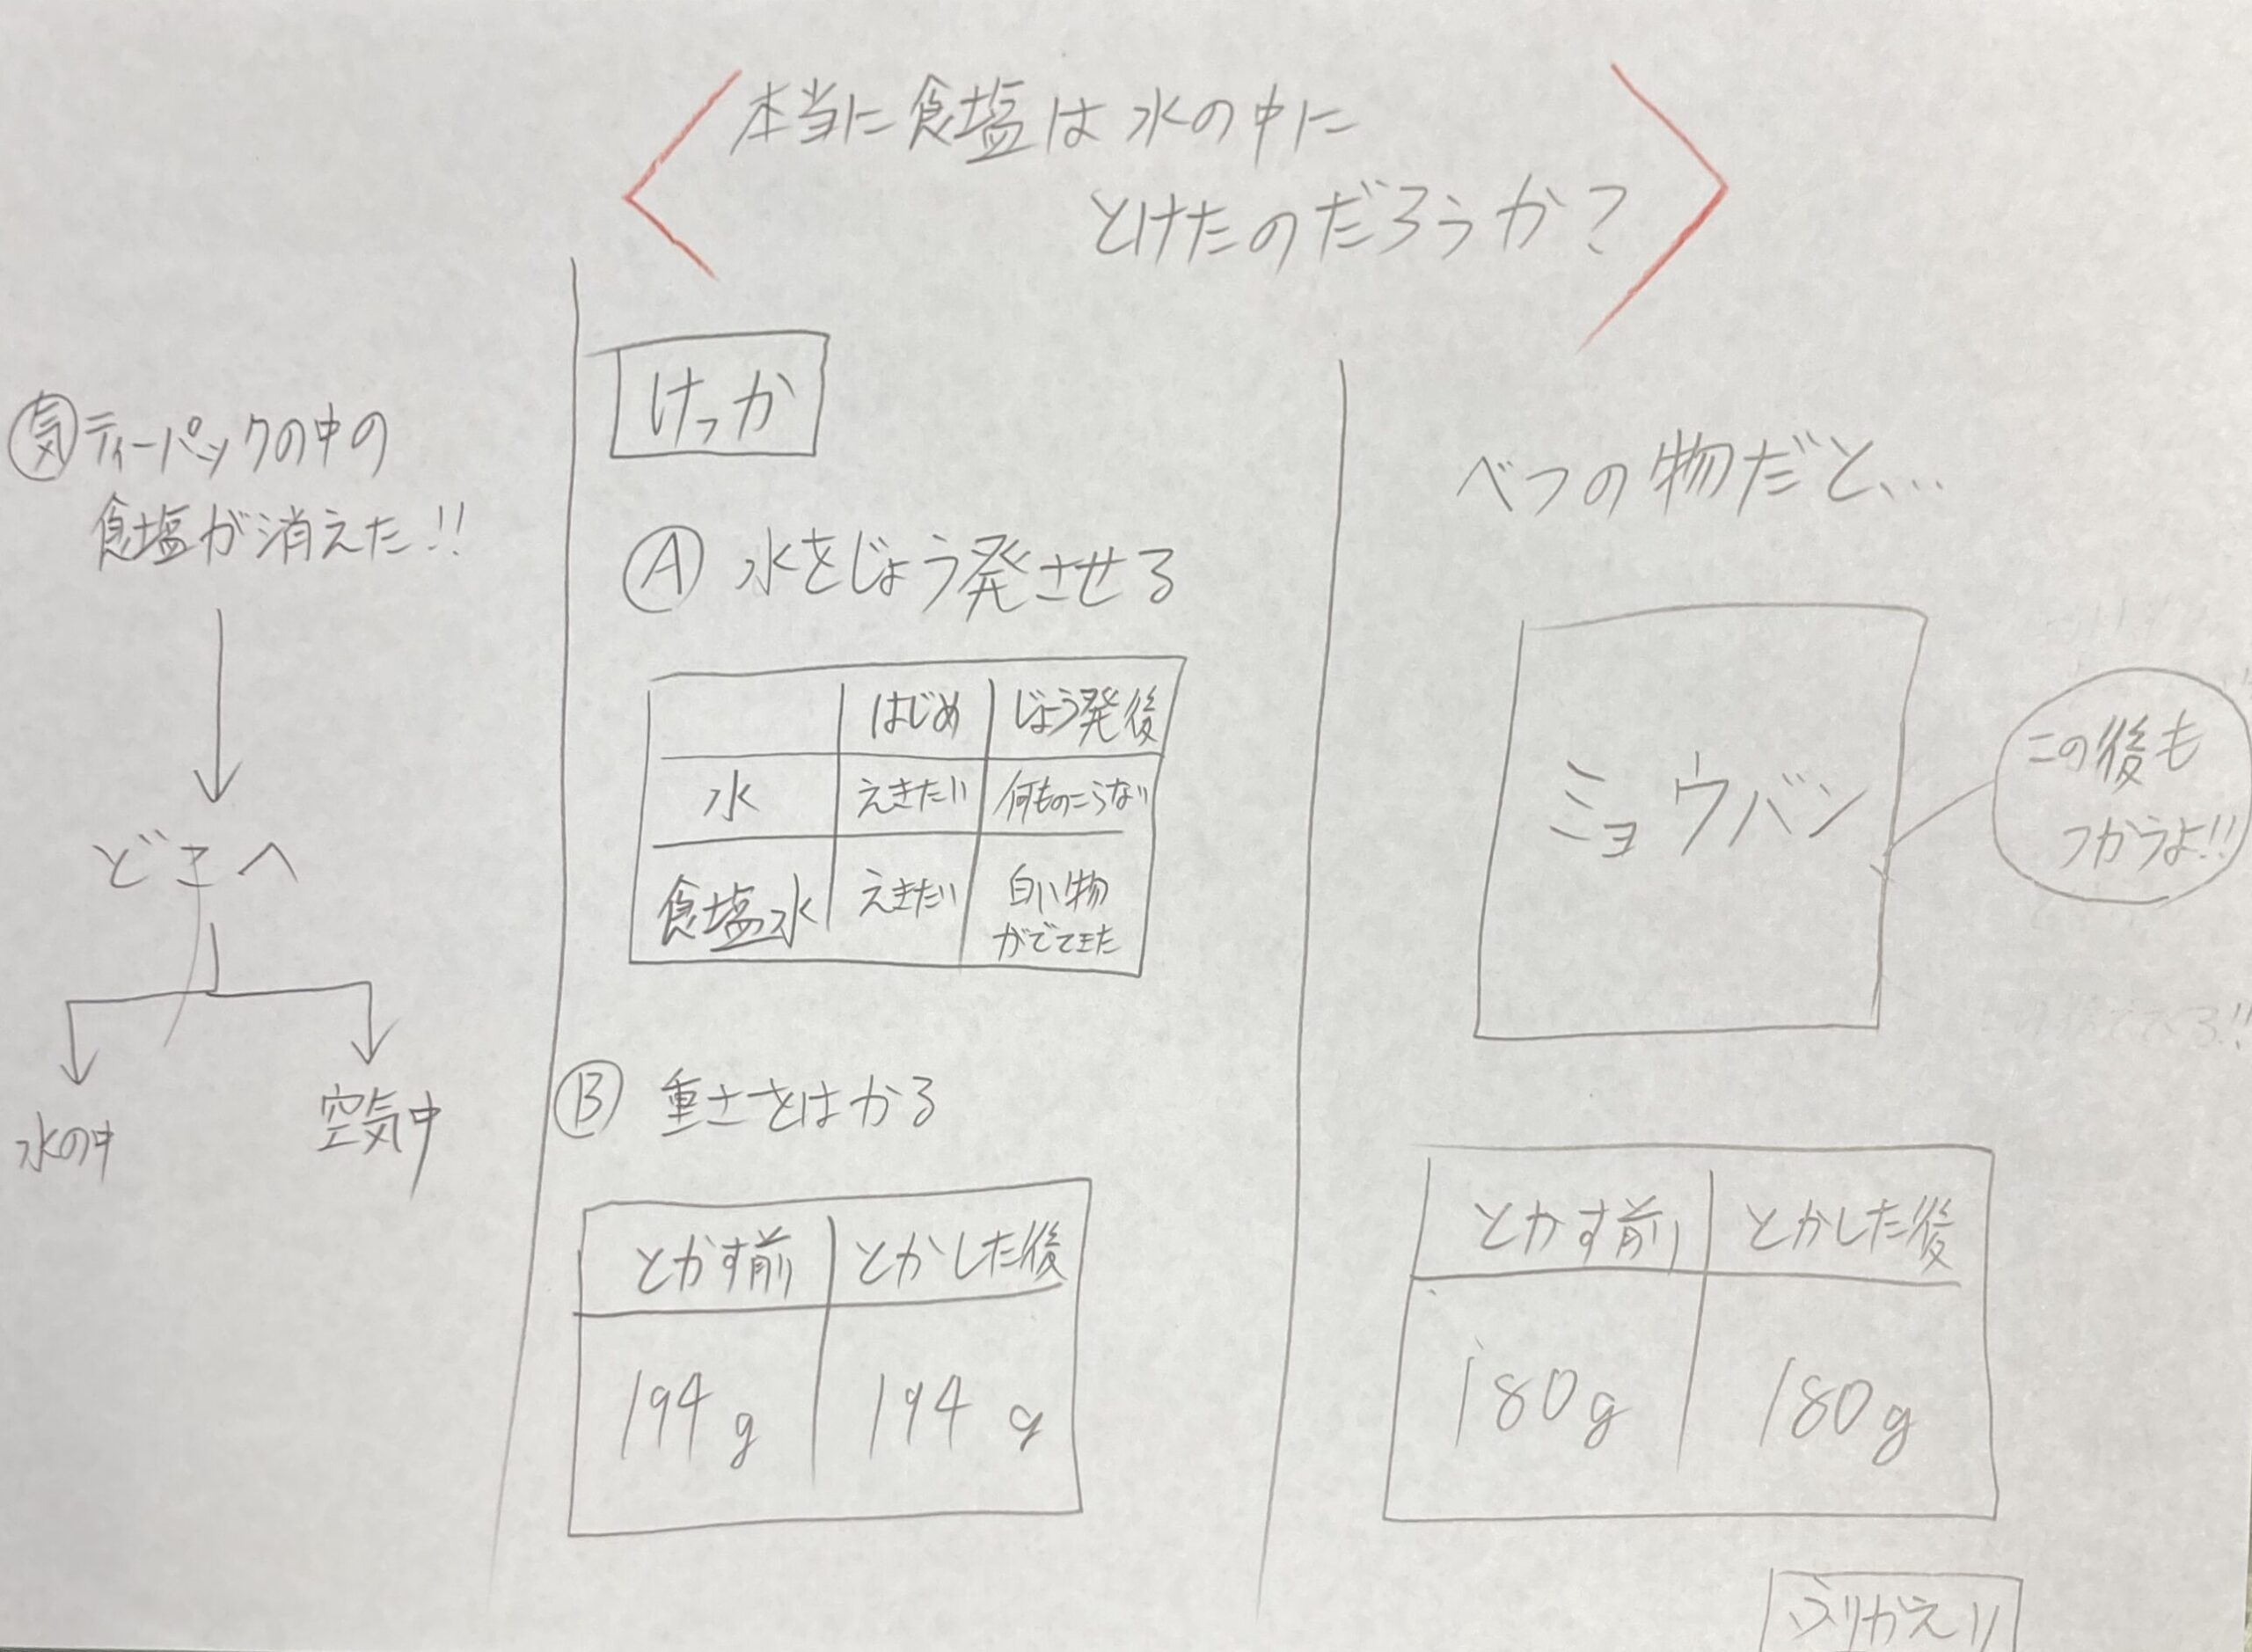 本当に食塩は水の中に
とけたのだろうか?
気 ティーパックの中の
食塩が消えた!!
どこへ
水の中 空気中
けっか
A 水をじょう発させる
はじめ じょう発後
水 えきたい 何ものこらない
食塩水 えきたい 白い物
がでてきた
B 重さをはかる
とかす前 とかした後
194g 194g
べつの物だと…
ミョウバン
この後も
つかうよ!!
とかす前 とかした後
180g 180g
ふりかえり